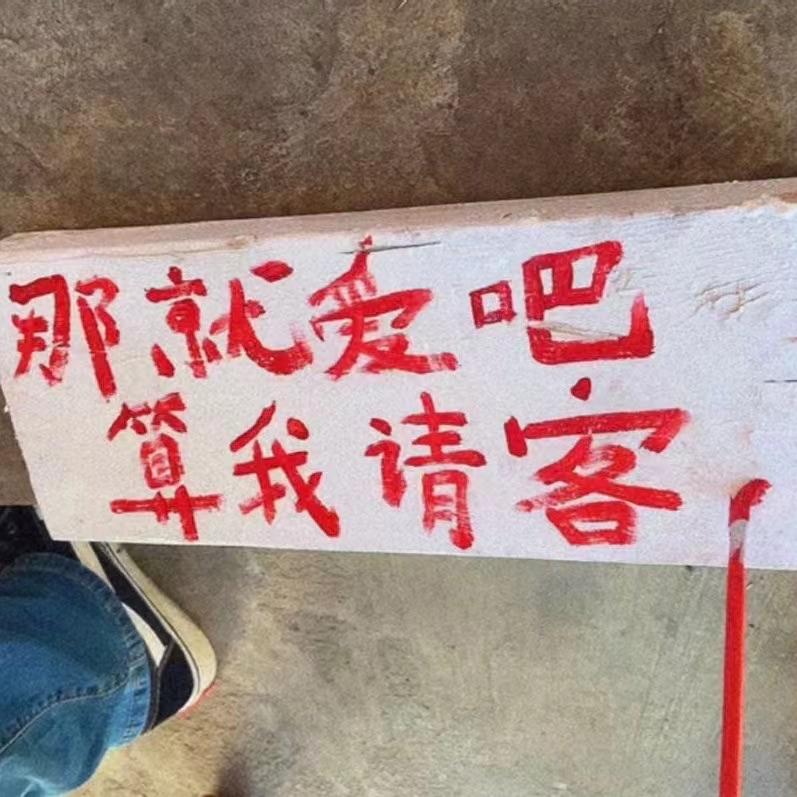 那就爱吧
算我请客